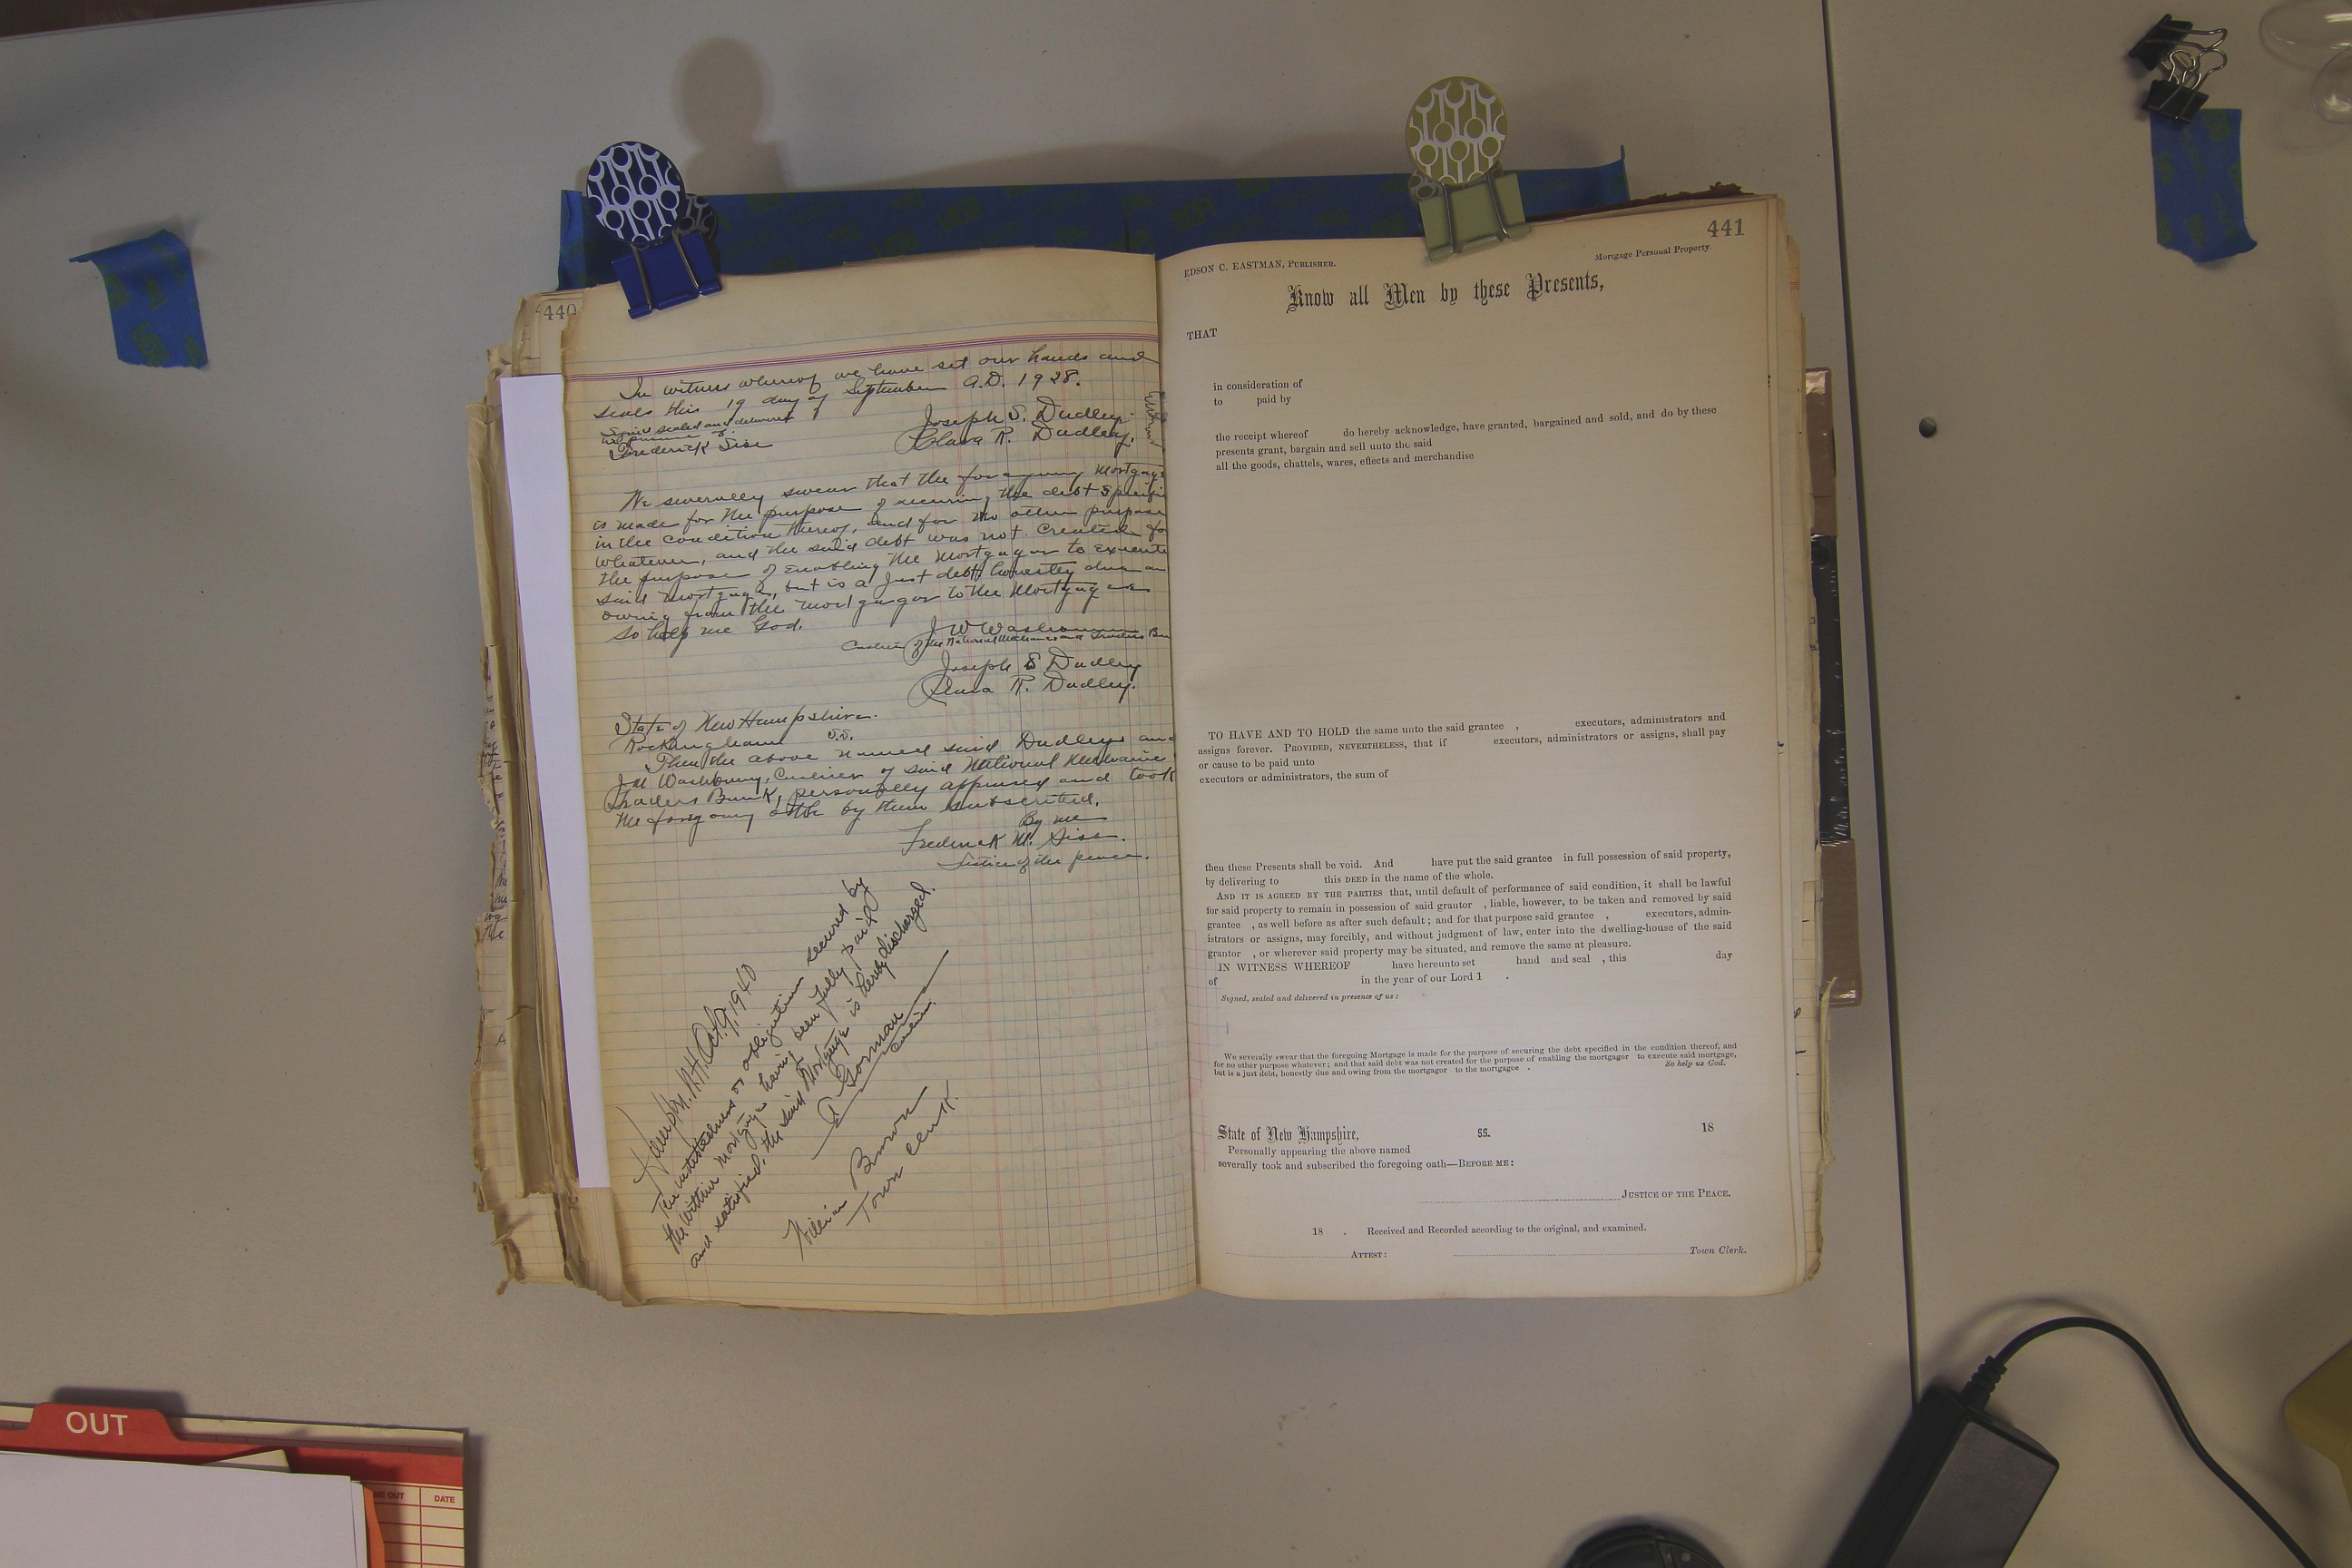 440
In witness whereof we have set our hands and
seals this 19 day of September A.D. 1928.
Signed sealed and delivered
in presence of
Frederick Sise
Joseph S. Dudley
Clara R. Dudley.
We severally swear that the foregoing Mortgage
is made for the purpose of securing the debt specifi
in the condition thereof, and for no other purpose
whatever, and the said debt was not created for
the purpose of enabling the Mortgagor to execute
said mortgage, but is a just debt honestly due an
owing from the mortgagor to the Mortgagee
so help me God.
J W Washburn
Cashier of the National Mechanics and Traders Ban
Joseph S Dudley
Clara R. Dudley.
State of New Hampshire.
Rockingham S.S.
Then the above named said Dudleys and
Washburn, Cashier of said National Mechanic
Traders Bank, personally appeared and took
the foregoing oath by them subscribed.
By me
Frederick M. Sise.
Justice of the peace.
Oct. 9, 1940
The indebtedness or obligation secured by
the within mortgage having been fully paid
and satisfied, the said Mortgage is hereby discharged.
Gorman
Cashier.
William Brown
Town Clerk.
441
EDSON C. EASTMAN, Publisher.
Mortgage Personal Property.
Know all Men by these Presents,
THAT
in consideration of
to paid by
the receipt whereof do hereby acknowledge, have granted, bargained and sold, and do by these
presents grant, bargain and sell unto the said
all the goods, chattels, wares, effects and merchandise
TO HAVE AND TO HOLD the same unto the said grantee , executors, administrators and
assigns forever. Provided, nevertheless, that if executors, administrators or assigns, shall pay
or cause to be paid unto
executors or administrators, the sum of
then these Presents shall be void. And have put the said grantee in full possession of said property,
by delivering to this deed in the name of the whole.
And it is agreed by the parties that, until default of performance of said condition, it shall be lawful
for said property to remain in possession of said grantor , liable, however, to be taken and removed by said
grantee , as well before as after such default ; and for that purpose said grantee , executors, admin-
istrators or assigns, may forcibly, and without judgment of law, enter into the dwelling-house of the said
grantor , or wherever said property may be situated, and remove the same at pleasure.
IN WITNESS WHEREOF have hereunto set hand and seal , this day
of in the year of our Lord 1 .
Signed, sealed and delivered in presence of us :
We severally swear that the foregoing Mortgage is made for the purpose of securing the debt specified in the condition thereof, and
for no other purpose whatever; and that said debt was not created for the purpose of enabling the mortgagor to execute said mortgage,
but is a just debt, honestly due and owing from the mortgagor to the mortgagee . So help us God.
State of New Hampshire, ss. 18
Personally appearing the above named
severally took and subscribed the foregoing oath—Before me:
Justice of the Peace.
18 . Received and Recorded according to the original, and examined.
Attest: Town Clerk.
OUT
DATE